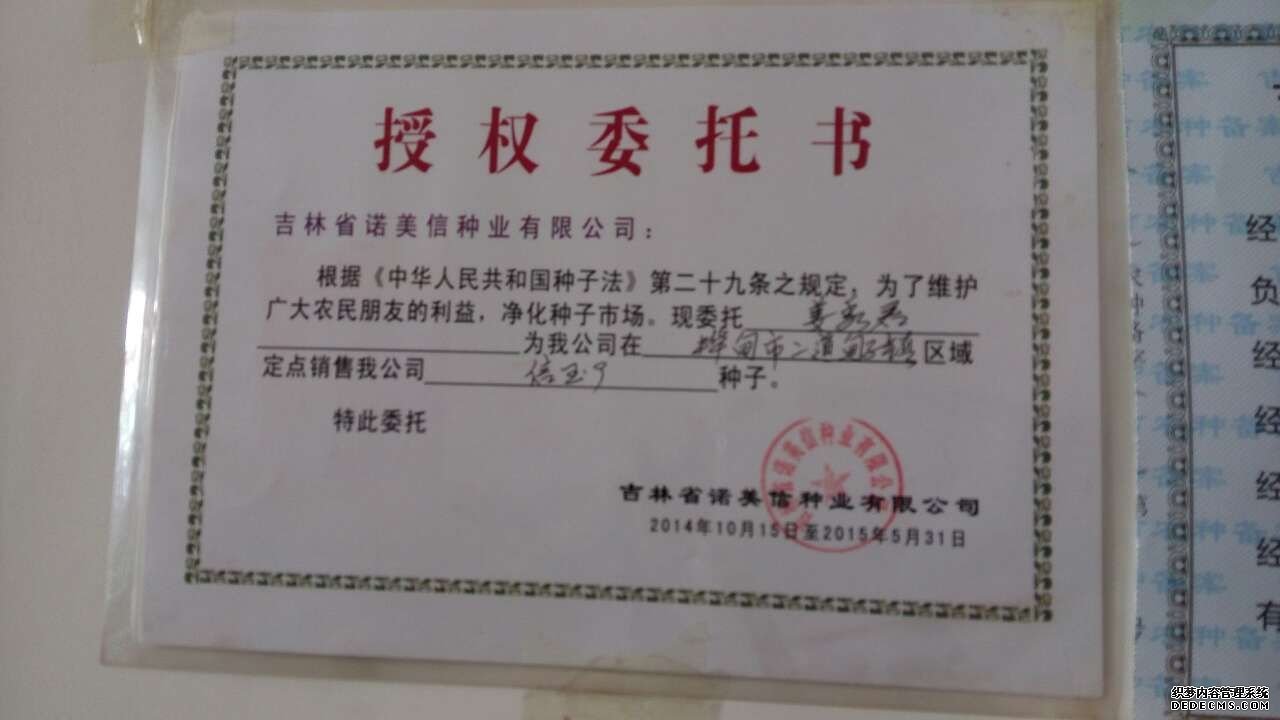 授权委托书
吉林省诺美信种业有限公司：
根据《中华人民共和国种子法》第二十九条之规定，为了维护
广大农民朋友的利益，净化种子市场。现委托
为我公司在 桦甸市二道甸子镇 区域
定点销售我公司 信玉9 种子。
特此委托
吉林省诺美信种业有限公司
2014年10月15日至2015年5月31日
诺美信种业有限公司
经
负
经
经
经
有
织梦内容管理系统
DEDECMS.COM